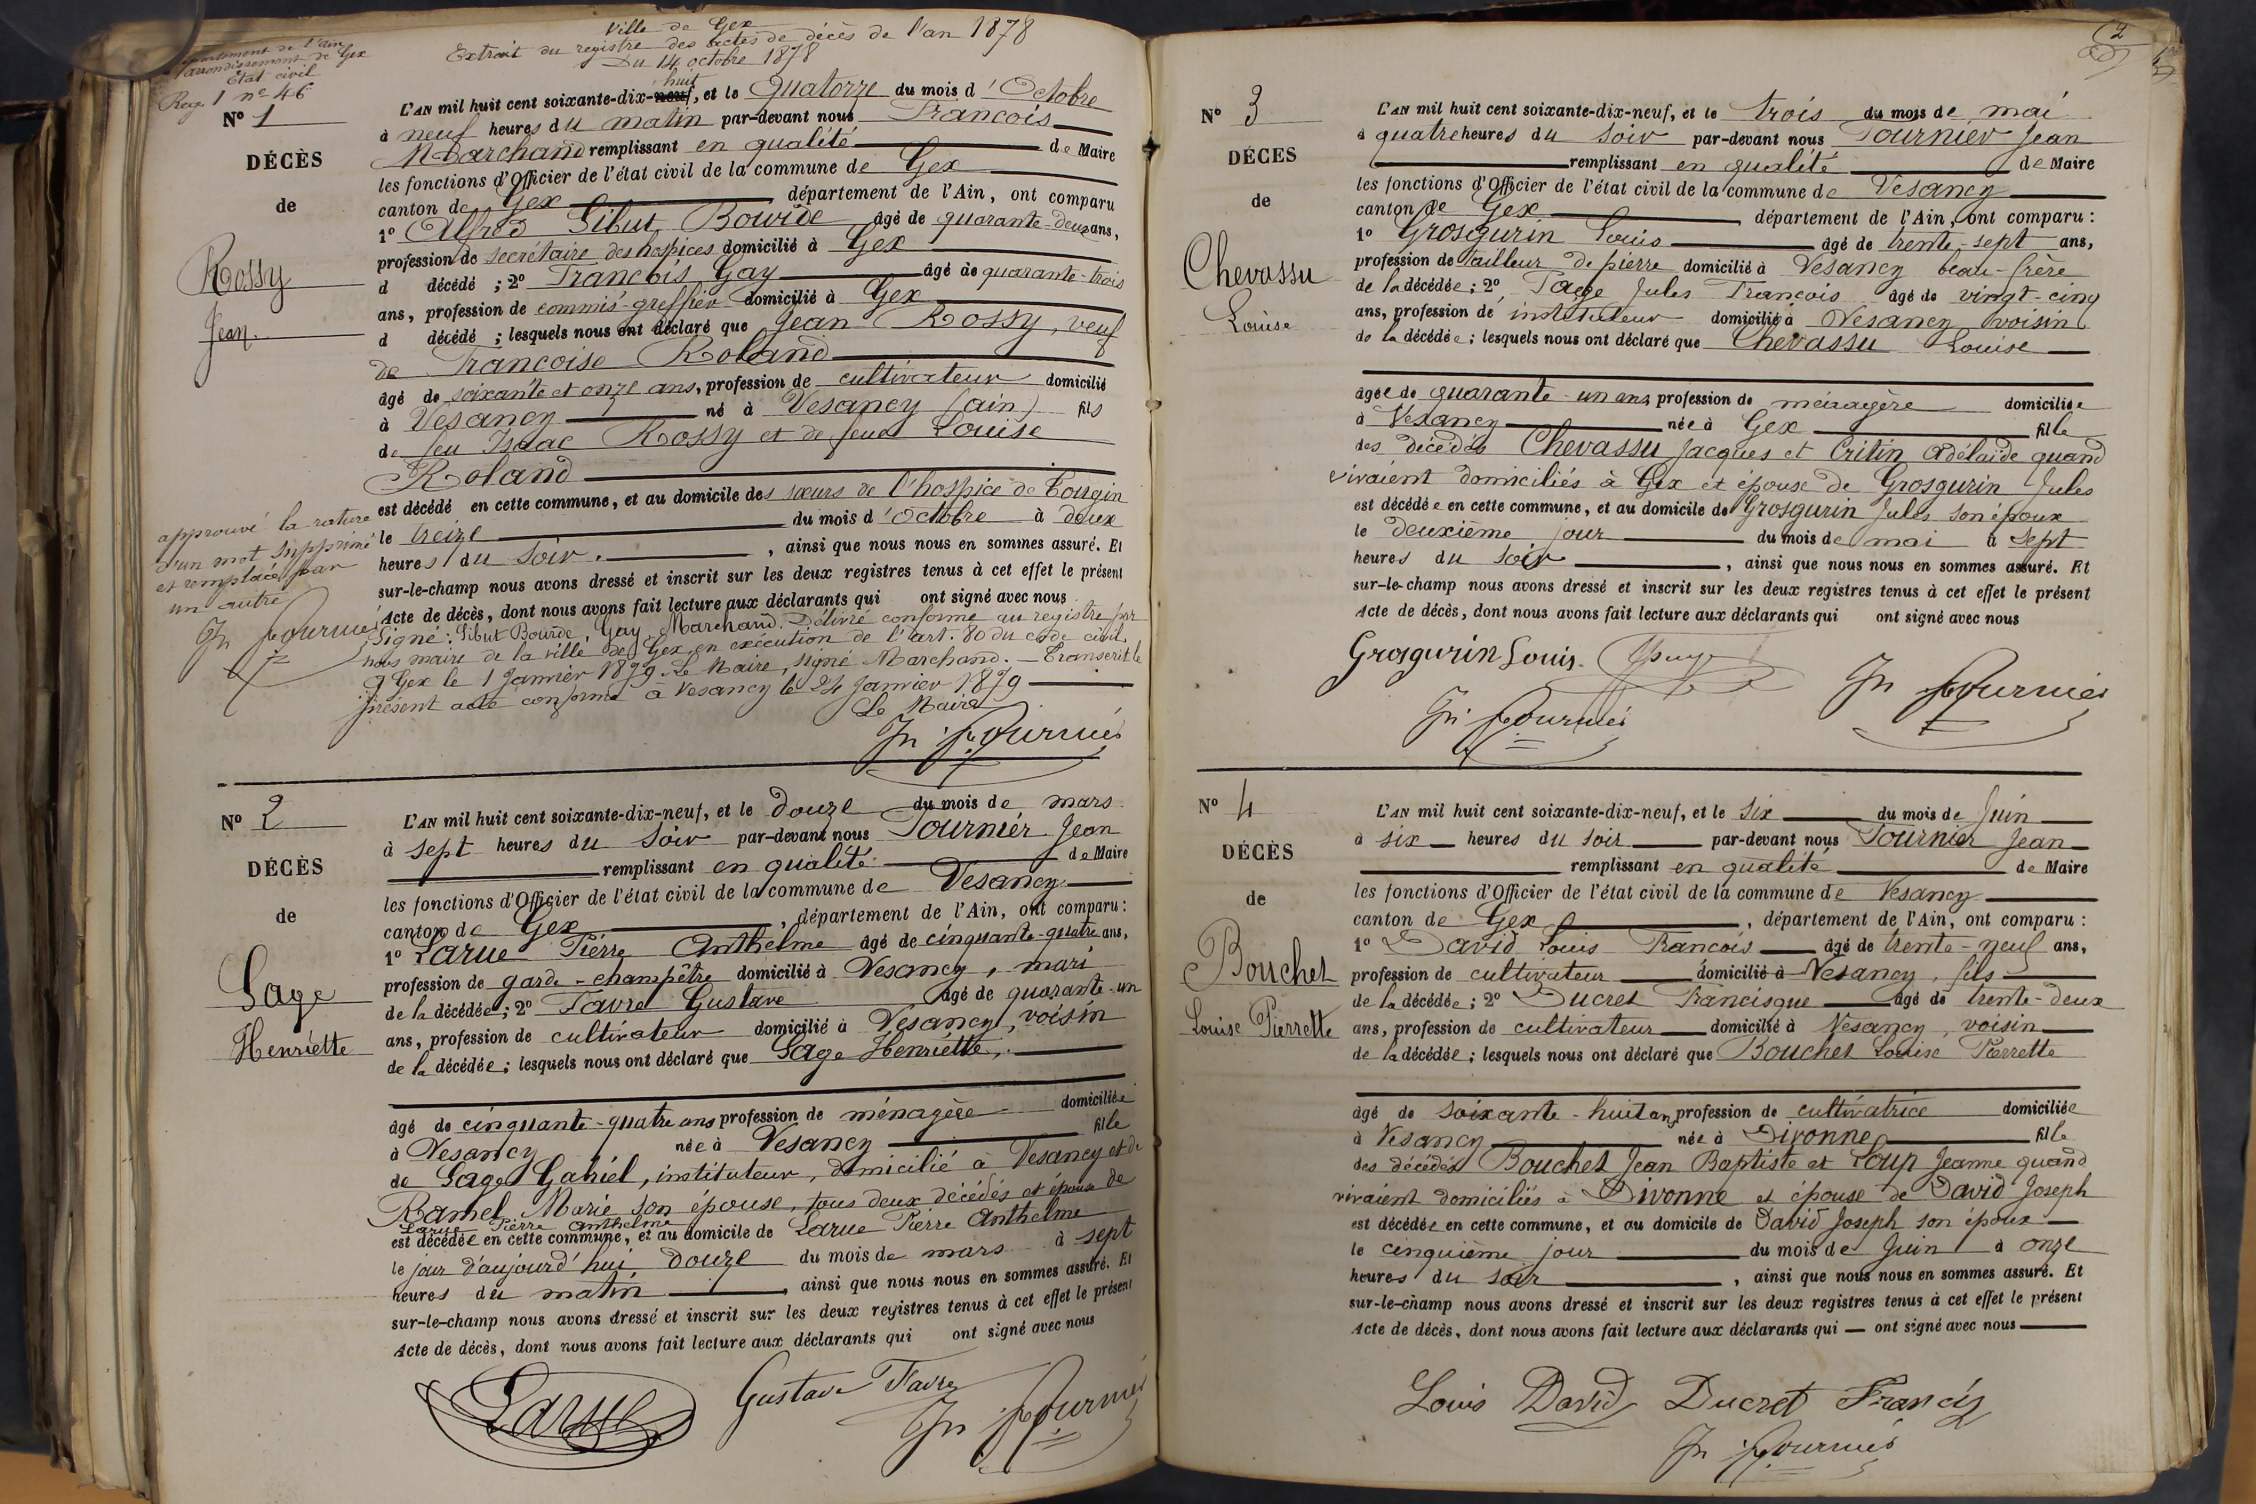 Ville de Gex
Extrait du registre des actes de décès de l'an 1878
Du 14 octobre 1878
département de l'ain
arrondissement de Gex
Etat civil
Reg. 1 nº 46
Nº 1
DÉCÈS
de
Rossy
Jean
huit
L'AN mil huit cent soixante-dix-neuf, et le quatorze du mois d'Octobre
à neuf heures du matin par-devant nous François
Marchand remplissant en qualité de Maire
les fonctions d'Officier de l'état civil de la commune de Gex
canton de Gex département de l'Ain, ont comparu
1º Alfred Sibut Bourde âgé de quarante-deux ans,
profession de secrétaire des hospices domicilié à Gex
d décédé ; 2º François Gay âgé de quarante-trois
ans, profession de commis-greffier domicilié à Gex
d décédé ; lesquels nous ont déclaré que Jean Rossy, veuf
de Françoise Roland
âgé de soixante et onze ans, profession de cultivateur domicilié
à Vesancy né à Vesancy (ain) fils
de feu Isaac Rossy et de feue Louise
Roland
est décédé en cette commune, et au domicile des sœurs de l'hospice de Tougin
le treize du mois d'Octobre à deux
heures du soir. , ainsi que nous nous en sommes assuré. Et
sur-le-champ nous avons dressé et inscrit sur les deux registres tenus à cet effet le présent
Acte de décès, dont nous avons fait lecture aux déclarants qui ont signé avec nous
Signé : Sibut Bourde, Gay, Marchand. Délivré conforme au registre par
nous maire de la ville de Gex, en exécution de l'art. 80 du code civil.
à Gex le 1 Janvier 1879. Le Maire, signé Marchand. — Transcrit le
présent acte conforme à Vesancy le 24 Janvier 1879
Le Maire
Jn Fournier
approuvé la rature
d'un mot supprimé
et remplacé par
un autre
Jn Fournier
Nº 2
DÉCÈS
de
Sage
Henriette
L'AN mil huit cent soixante-dix-neuf, et le douze du mois de mars
à sept heures du soir par-devant nous Fournier Jean
remplissant en qualité de Maire
les fonctions d'Officier de l'état civil de la commune de Vesancy
canton de Gex , département de l'Ain, ont comparu :
1º Larue Pierre Anthelme âgé de cinquante-quatre ans,
profession de garde-champêtre domicilié à Vesancy, mari
de la décédée ; 2º Favre Gustave âgé de quarante-un
ans, profession de cultivateur domicilié à Vesancy, voisin
de la décédée ; lesquels nous ont déclaré que Sage Henriette,
âgé de cinquante-quatre ans profession de ménagère domiciliée
à Vesancy née à Vesancy fille
de Sage Gabriel, instituteur, domicilié à Vesancy et de
Ramel Marie son épouse, tous deux décédés et épouse de
Larue Pierre Anthelme
est décédée en cette commune, et au domicile de Larue Pierre Anthelme
le jour d'aujourd'hui douze du mois de mars à sept
heures du matin , ainsi que nous nous en sommes assuré. Et
sur-le-champ nous avons dressé et inscrit sur les deux registres tenus à cet effet le présent
Acte de décès, dont nous avons fait lecture aux déclarants qui ont signé avec nous
Larue Gustave Favre
Jn Fournier
2
Nº 3
DÉCES
de
Chevassu
Louise
L'AN mil huit cent soixante-dix-neuf, et le trois du mois de mai
à quatre heures du soir par-devant nous Fournier Jean
remplissant en qualité de Maire
les fonctions d'Officier de l'état civil de la commune de Vesancy
canton de Gex département de l'Ain, ont comparu :
1º Grosgurin Louis âgé de trente-sept ans,
profession de tailleur de pierre domicilié à Vesancy beau-frère
de la décédée ; 2º Page Jules François âgé de vingt-cinq
ans, profession de instituteur domicilié à Vesancy voisin
de la décédée ; lesquels nous ont déclaré que Chevassu Louise
âgée de quarante-un ans profession de ménagère domiciliée
à Vesancy née à Gex fille
des décédés Chevassu Jacques et Critin Adélaïde quand
vivaient domiciliés à Gex et épouse de Grosgurin Jules
est décédée en cette commune, et au domicile de Grosgurin Jules son époux
le deuxième jour du mois de mai à sept
heures du soir , ainsi que nous nous en sommes assuré. Et
sur-le-champ nous avons dressé et inscrit sur les deux registres tenus à cet effet le présent
Acte de décès, dont nous avons fait lecture aux déclarants qui ont signé avec nous
Grosgurin Louis.
Jn Fournier
Jn Fournier
Nº 4
DÉCÈS
de
Bouchet
Louise Pierrette
L'AN mil huit cent soixante-dix-neuf, et le six du mois de Juin
à six heures du soir par-devant nous Fournier Jean
remplissant en qualité de Maire
les fonctions d'Officier de l'état civil de la commune de Vesancy
canton de Gex , département de l'Ain, ont comparu :
1º David Louis François âgé de trente-neuf ans,
profession de cultivateur domicilié à Vesancy, fils
de la décédée ; 2º Ducret Francisque âgé de trente-deux
ans, profession de cultivateur domicilié à Vesancy, voisin
de la décédée ; lesquels nous ont déclaré que Bouchet Louise Pierrette
âgé de soixante-huit ans profession de cultivatrice domiciliée
à Vesancy née à Divonne fille
des décédés Bouchet Jean Baptiste et Loup Jeanne quand
vivaient domiciliés à Divonne et épouse de David Joseph
est décédée en cette commune, et au domicile de David Joseph son époux
le cinquième jour du mois de Juin à onze
heures du soir , ainsi que nous nous en sommes assuré. Et
sur-le-champ nous avons dressé et inscrit sur les deux registres tenus à cet effet le présent
Acte de décès, dont nous avons fait lecture aux déclarants qui — ont signé avec nous
Louis David Ducret Francis
Jn Fournier